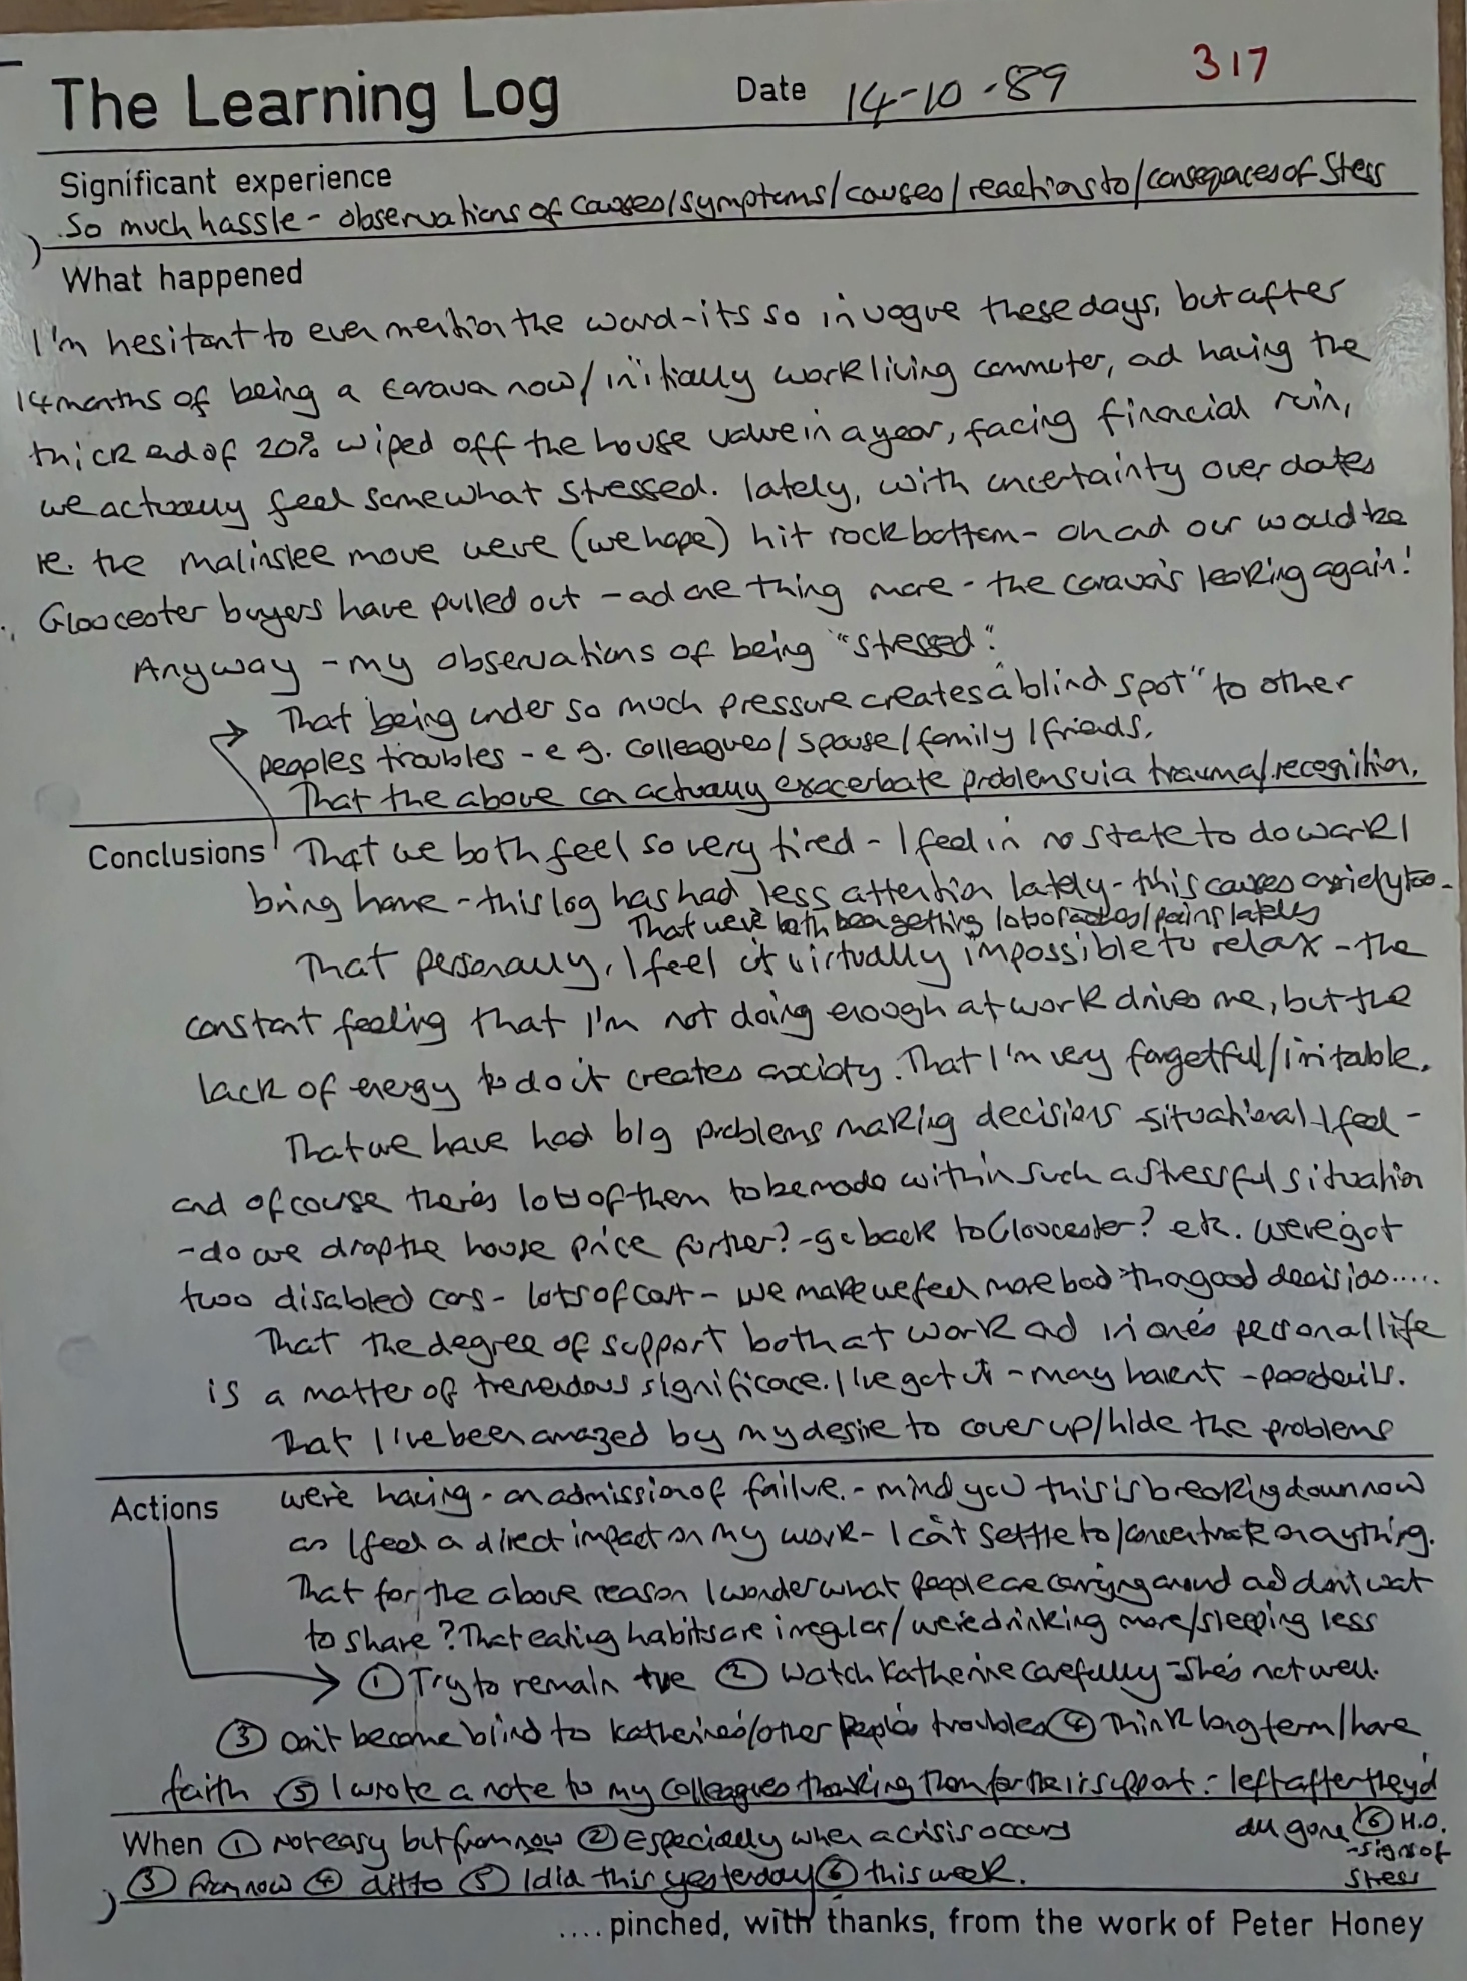 317
The Learning Log Date 14-10-89
Significant experience
So much hassle - observations of causes/symptoms/causes/reactions to/conseqaces of Stess
What happened
I'm hesitant to even mention the word - its so in vogue these days, but after
14 months of being a carava now/initially work living commuter, ad having the
thick ad of 20% wiped off the house value in a year, facing financial ruin,
we actually feel somewhat stressed. lately, with uncertainty over dates
re. the malinslee move weve (we hope) hit rock bottom - oh ad our would be
Gloocester buyers have pulled out - ad one thing more - the carava's leaking again!
Anyway - my observations of being "stressed":
That being under so much pressure creates a "blind spot" to other
peoples troubles - e.g. colleagues/spouse/family/friends.
That the above can actually exacerbate problems via trauma/recognition.
Conclusions That we both feel so very tired - I feel in no state to do work I
bring home - this log has had less attention lately - this causes anxiety too -
That we've both been getting lots of aches/pains lately
That personally, I feel it virtually impossible to relax - the
constant feeling that I'm not doing enough at work drives me, but the
lack of energy to do it creates anxiety. That I'm very forgetful/irritable.
That we have had big problems making decisions situational I feel -
and of couse there's lots of them to be made within such a stressful situation
- do we drop the house price further? - go back to Gloucester? etc. weve got
two disabled cars - lots of cost - we make we feel more bad than good decisions.....
That the degree of support both at work ad in one's personal life
is a matter of tremendous significace. I I've got it - may havent - poor devils.
That I've been amazed by my desire to cover up/hide the problems
Actions we're having - an admission of failure. - mind you this is breaking down now
as I feel a direct impact on my work - I can't settle to/concentrate on anything.
That for the above reason I wonder what people are carrying around ad don't wat
to share? That eating habits are irregular/we're drinking more/sleeping less
① Try to remain +ve ② Watch Katherine carefully - she's not well.
③ Don't become blind to Katherine's/other people's troubles ④ Think long term/have
faith ⑤ I wrote a note to my colleagues thanking them for their support - left after they'd
all gone ⑥ H.O. - signs of stress
When ① Not easy but from now ② Especially when a crisis occurs
③ from now ④ ditto ⑤ I did this yesterday ⑥ this week.
....pinched, with thanks, from the work of Peter Honey